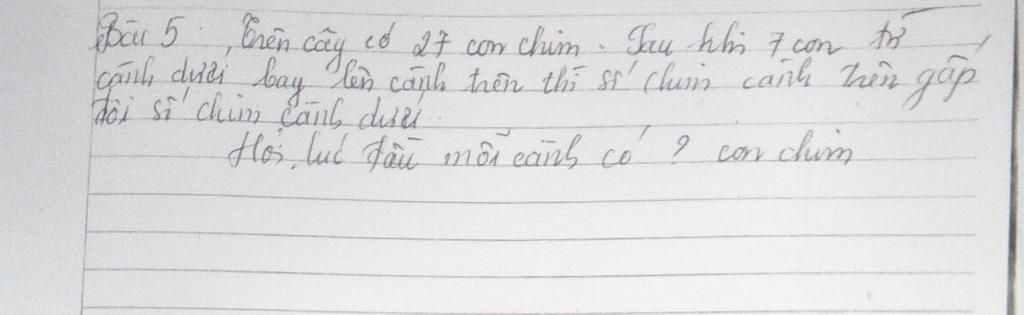 Bài 5. Trên cây có 27 con chim. Sau khi 7 con từ
cành dưới bay lên cành trên thì số chim cành trên gấp
đôi số chim cành dưới.
Hỏi, lúc đầu mỗi cành có ? con chim